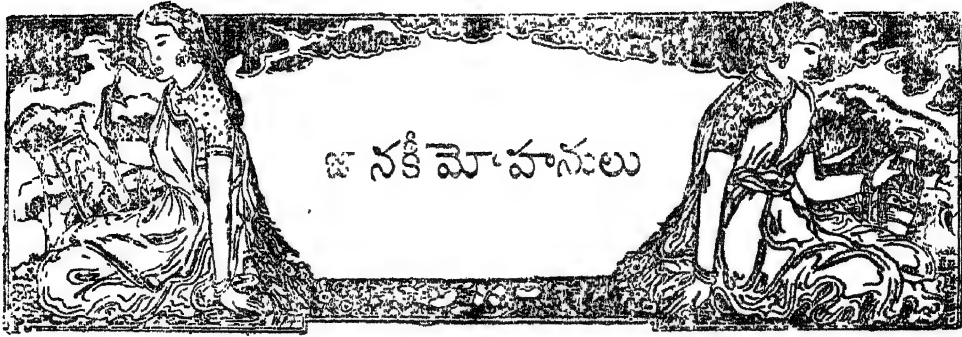 జానకీమోహనులు